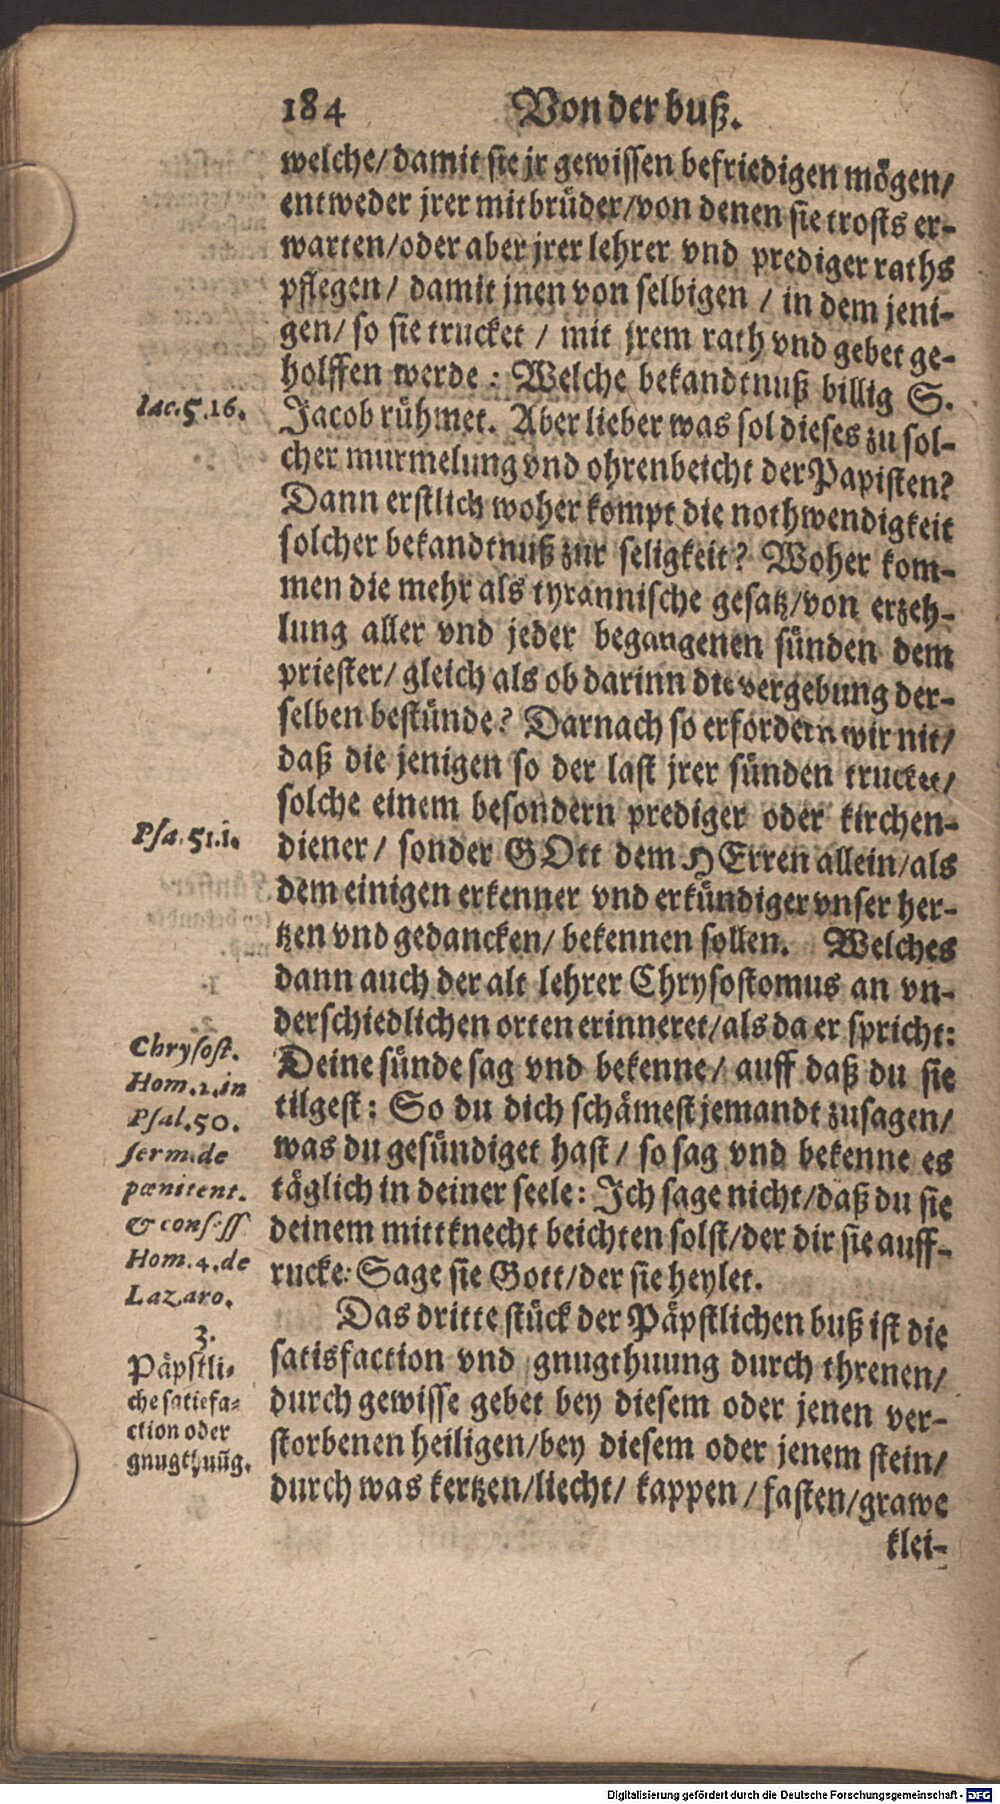 184 Von der buß.
welche/ damit sie jr gewissen befriedigen mögen/
entweder jrer mitbrüder/von denen sie trosts er-
warten/oder aber jrer lehrer vnd prediger raths
pflegen/ damit jnen von selbigen / in dem jeni-
gen/ so sie trucket / mit jrem rath vnd gebet ge-
holffen werde : Welche bekandtnuß billig S.
Iac.5.16.
Jacob rühmet. Aber lieber was sol dieses zu sol-
cher murmelung vnd ohrenbeicht der Papisten?
Dann erstlich woher kompt die nothwendigkeit
solcher bekandtnuß zur seligkeit? Woher kom-
men die mehr als tyrannische gesatz/von erzeh-
lung aller vnd jeder begangenen sünden dem
priester/ gleich als ob darinn die vergebung der-
selben bestünde? Darnach so erfordern wir nit/
daß die jenigen so der last jrer sünden trucket/
solche einem besondern prediger oder kirchen-
Psa.51.1.
diener/ sonder GOtt dem HErren allein/als
dem einigen erkenner vnd erkündiger vnser her-
tzen vnd gedancken/ bekennen sollen. Welches
dann auch der alt lehrer Chrysostomus an vn-
derschiedlichen orten erinneret/als da er spricht:
Chrysost.
Hom.2.in
Psal.50.
serm.de
pœnitent.
& confess
Hom.4.de
Lazaro.
Deine sünde sag vnd bekenne/ auff daß du sie
tilgest: So du dich schämest jemandt zusagen/
was du gesündiget hast / so sag vnd bekenne es
täglich in deiner seele: Ich sage nicht/daß du sie
deinem mittknecht beichten solst/der dir sie auff-
rucke: Sage sie Gott/der sie heylet.
3.
Päpstli-
che satisfa-
ction oder
gnugthuũg.
Das dritte stück der Päpstlichen buß ist die
satisfaction vnd gnugthuung durch threnen/
durch gewisse gebet bey diesem oder jenen ver-
storbenen heiligen/bey diesem oder jenem stein/
durch was kertzen/liecht/ kappen / fasten/grawe
klei-
Digitalisierung gefördert durch die Deutsche Forschungsgemeinschaft - DFG